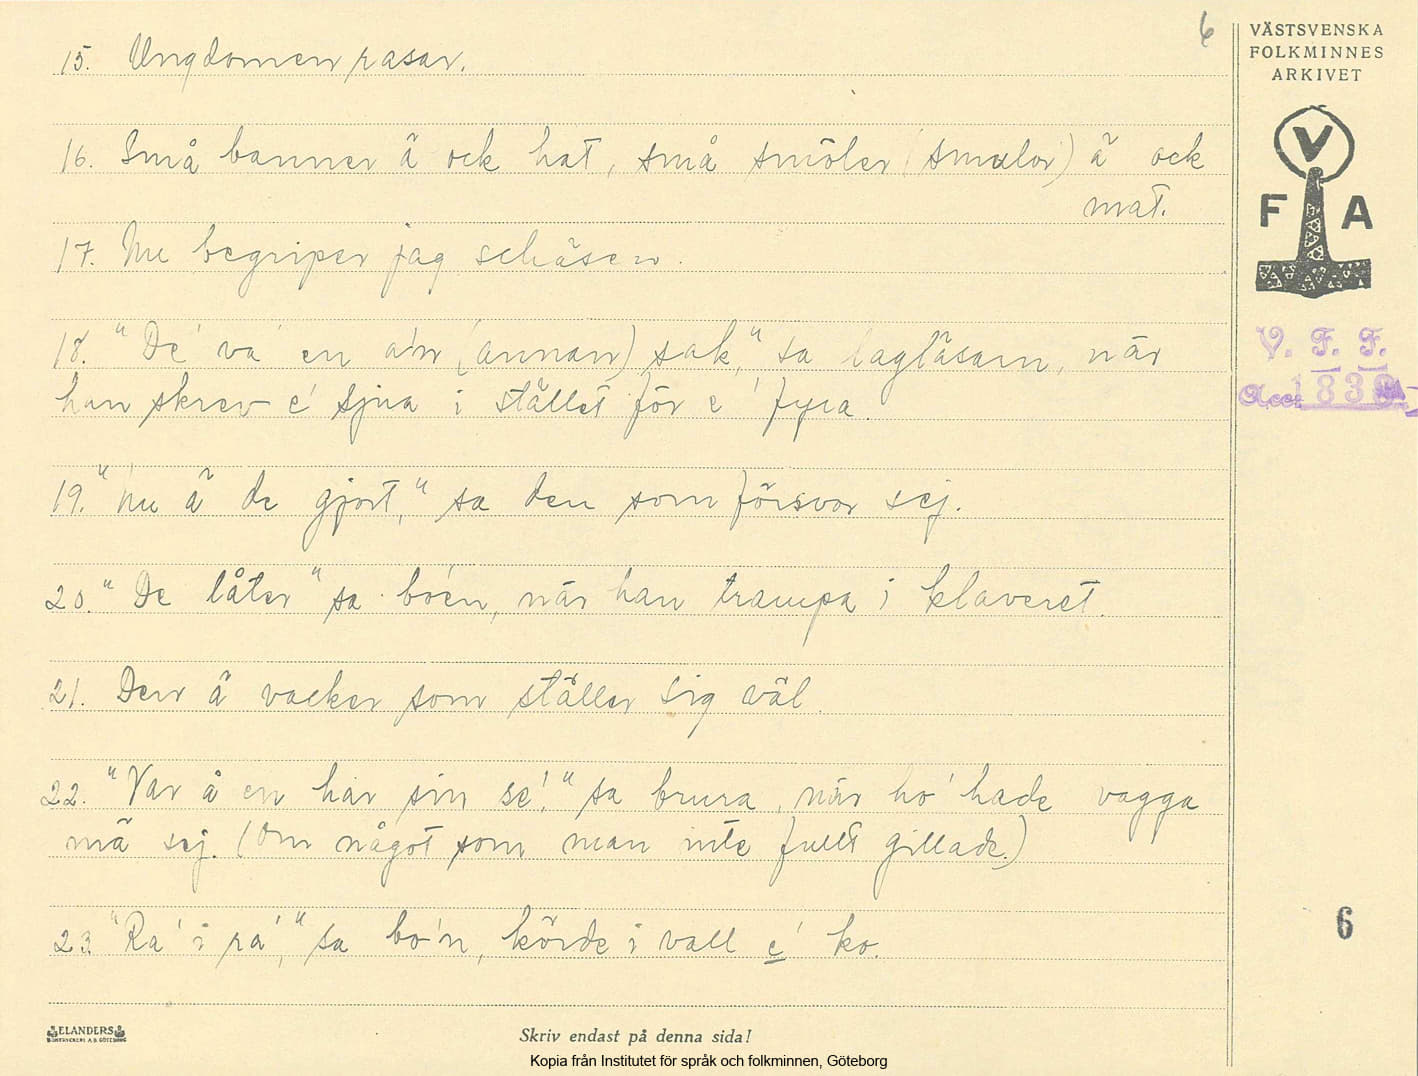 6
15. Ungdomen rasar.
16. Små banner ä ock hat, små smöler (smulor) ä ock
mat.
17. Nu begriper jag schäsen.
18. "De' va' en a'n (annan) sak," sa lagläsarn, när
han skrev e' sjua i stället för e' fyra.
19. "Nu ä de gjort," sa den som försvor sej.
20. "De låter" sa bo'en, när han trampa i klaveret.
21. Den ä vacker som ställer sig väl.
22. "Var å en har sin se'," sa brura, när ho' hade vagga
mä sej. (Om något som man inte fullt gillade.)
23. "Ra' i ra'," sa bo'n, körde i vall e' ko.
VÄSTSVENSKA
FOLKMINNES
ARKIVET
V
F A
V. F. F.
Acc. 183
6
ELANDERS
Skriv endast på denna sida!
Kopia från Institutet för språk och folkminnen, Göteborg